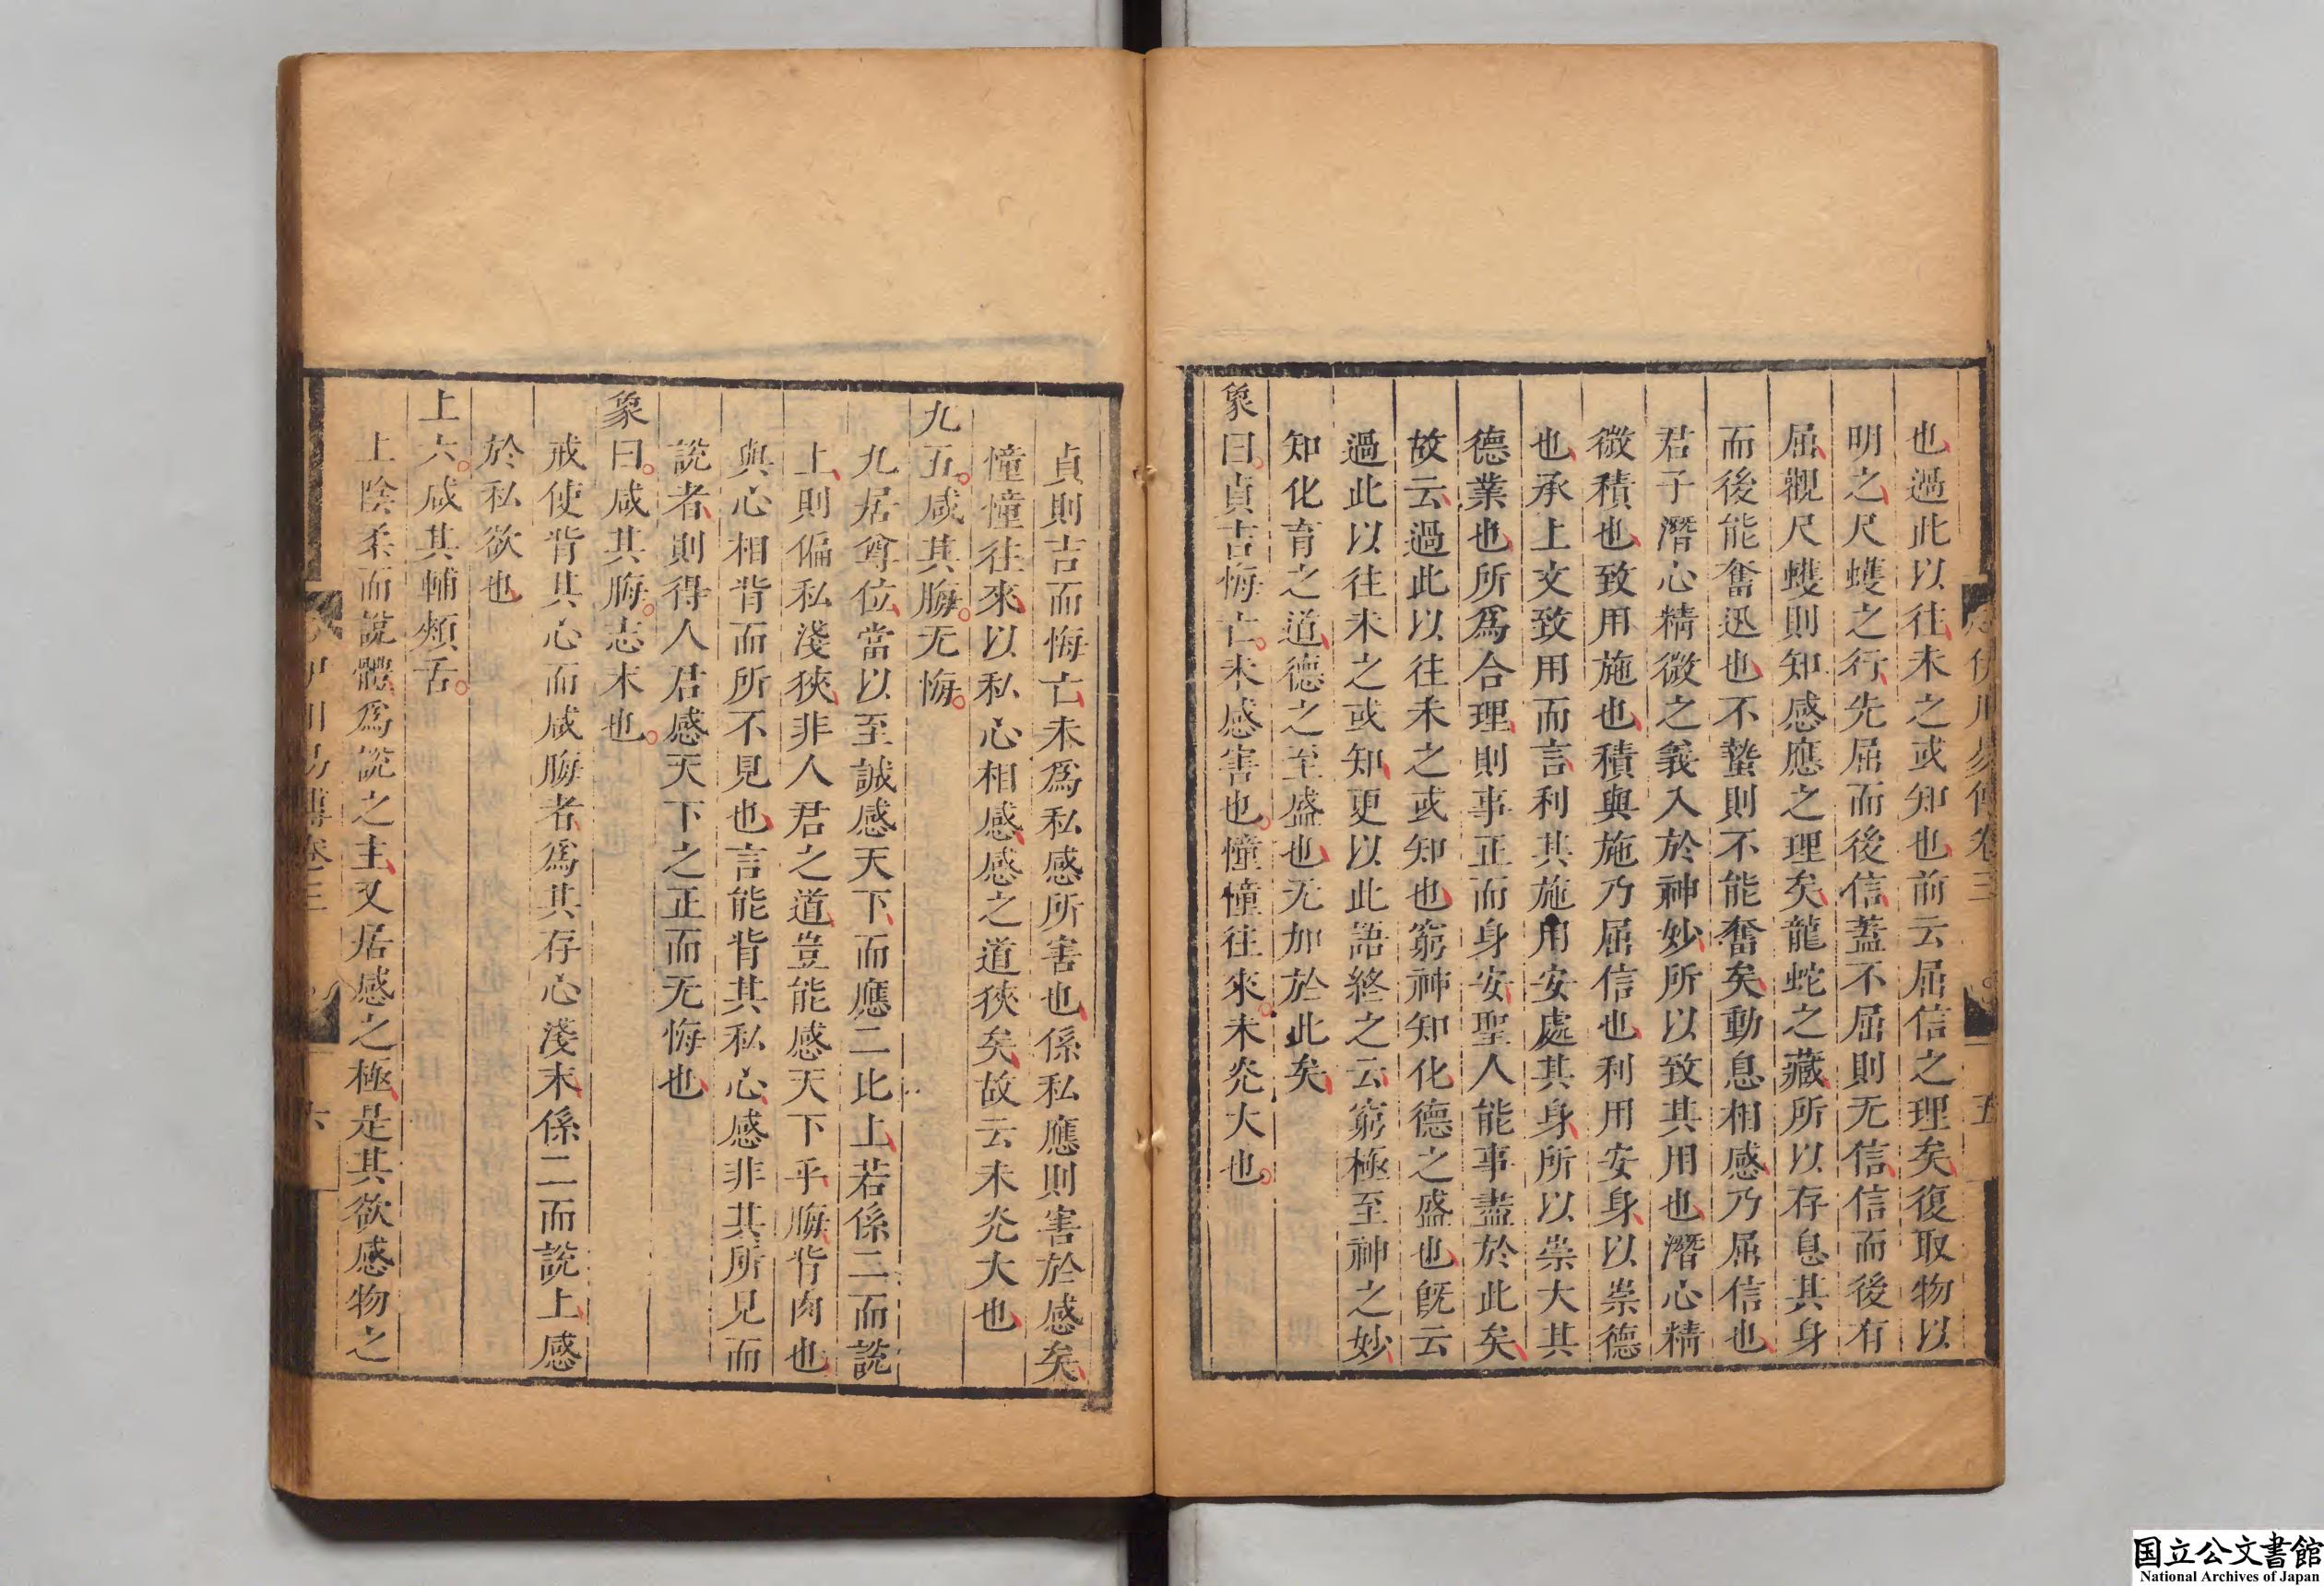 伊川易傳卷三
五
也過此以往未之或知也前云屈信之理矣復取物以
明之尺蠖之行先屈而後信蓋不屈則无信信而後有
屈觀尺蠖則知感應之理矣龍蛇之藏所以存息其身
而後能奮迅也不蟄則不能奮矣動息相感乃屈信也
君子潛心精微之義入於神妙所以致其用也潛心精
微積也致用施也積與施乃屈信也利用安身以崇德
也承上文致用而言利其施用安處其身所以崇大其
德業也所爲合理則事正而身安聖人能事盡於此矣
故云過此以往未之或知也窮神知化德之盛也旣云
過此以往未之或知更以此語終之云窮極至神之妙
知化育之道德之至盛也无加於此矣
象曰貞吉悔亡未感害也憧憧往來未光大也
貞則吉而悔亡未爲私感所害也係私應則害於感矣
憧憧往來以私心相感感之道狹矣故云未光大也
九五咸其脢无悔
九居尊位當以至誠感天下而應二比上若係二而說
上則偏私淺狹非人君之道豈能感天下乎脢背肉也
與心相背而所不見也言能背其私心感非其所見而
說者則得人君感天下之正而无悔也
象曰咸其脢志末也
戒使背其心而咸脢者爲其存心淺末係二而說上感
於私欲也
上六咸其輔頰舌
上陰柔而說體爲說之主又居感之極是其欲感物之
伊川易傳卷三
六
国立公文書館
National Archives of Japan